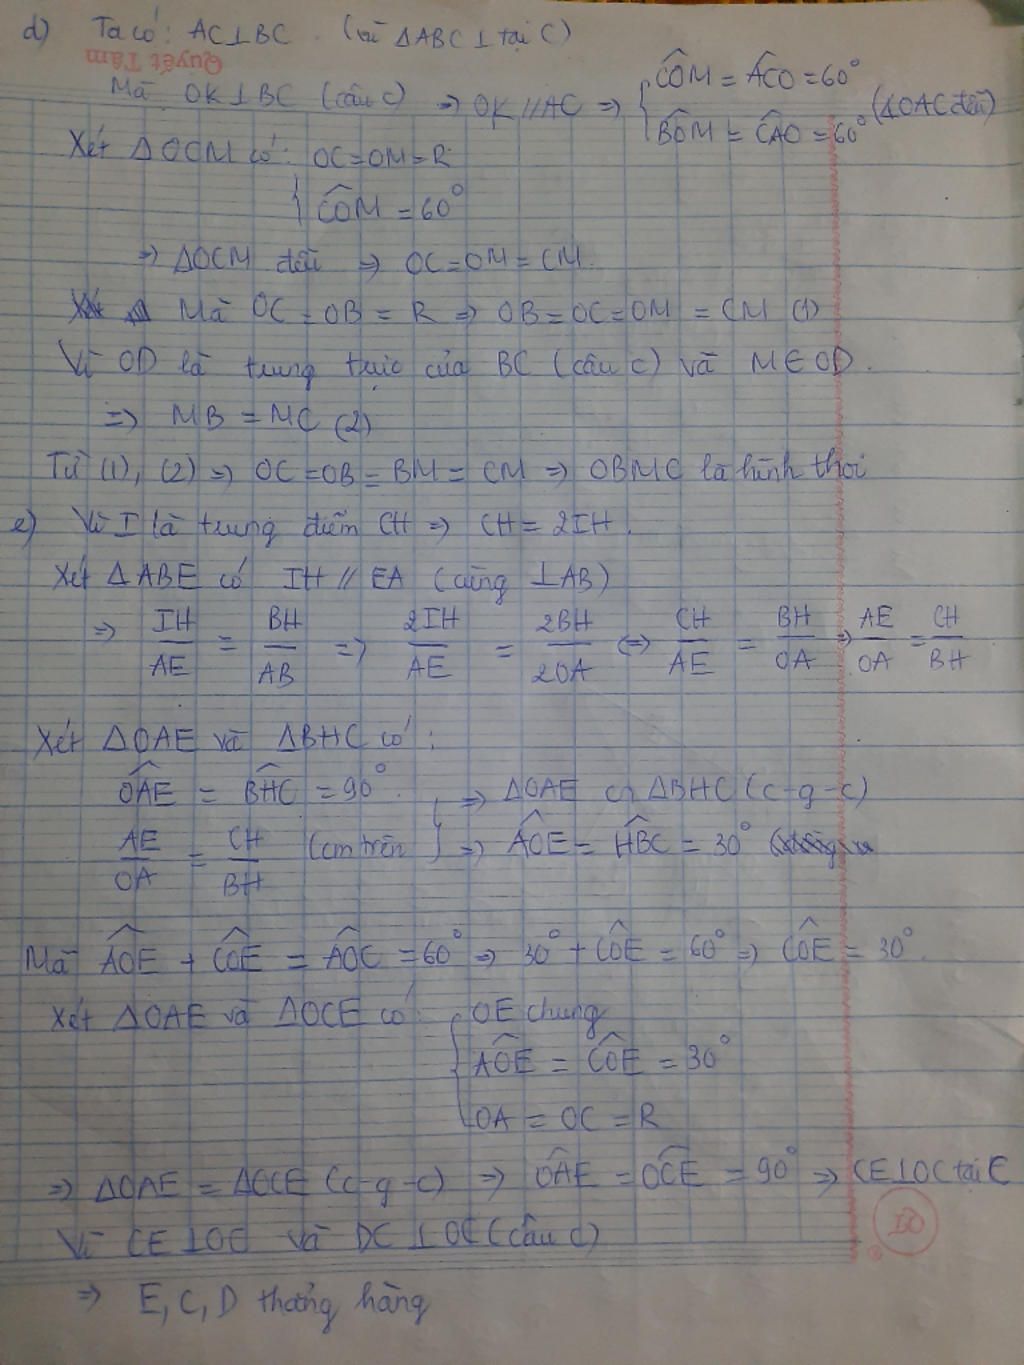 d) Ta có: AC⊥BC. (vì ΔABC ⊥ tại C)
Quyết Tâm
Mà OK⊥BC (câu c) ⇒ OK // AC ⇒ { COM̂ = ACÔ = 60°
BOM̂ = CAÔ = 60° (ΔOAC đều)
Xét ΔOCM có: OC=OM=R
{ COM̂ = 60°
⇒ ΔOCM đều ⇒ OC=OM=CM.
Mà OC=OB=R ⇒ OB=OC=OM=CM (1)
Vì OD là trung trực của BC (câu c) và M∈OD.
⇒ MB=MC (2)
Từ (1), (2) ⇒ OC=OB=BM=CM ⇒ OBMC là hình thoi
e) Vì I là trung điểm CH ⇒ CH=2IH.
Xét ΔABE có IH // EA (cùng ⊥AB)
⇒ IH/AE = BH/AB ⇒ 2IH/AE = 2BH/2OA ⇔ CH/AE = BH/OA ⇒ AE/OA = CH/BH
Xét ΔOAE và ΔBHC có:
OAÊ = BHĈ = 90°. } ⇒ ΔOAE ∽ ΔBHC (c-g-c)
AE/OA = CH/BH (cm trên } ⇒ AOÊ = HBĈ = 30°
Mà AOÊ + COÊ = AOĈ = 60° ⇒ 30° + COÊ = 60° ⇒ COÊ = 30°.
Xét ΔOAE và ΔOCE có { OE chung
AOÊ = COÊ = 30°
OA = OC = R
⇒ ΔOAE = ΔOCE (c-g-c) ⇒ OAÊ = OCÊ = 90° ⇒ CE⊥OC tại C
Vì CE⊥OC và DC⊥OC (câu c)
⇒ E, C, D thẳng hàng